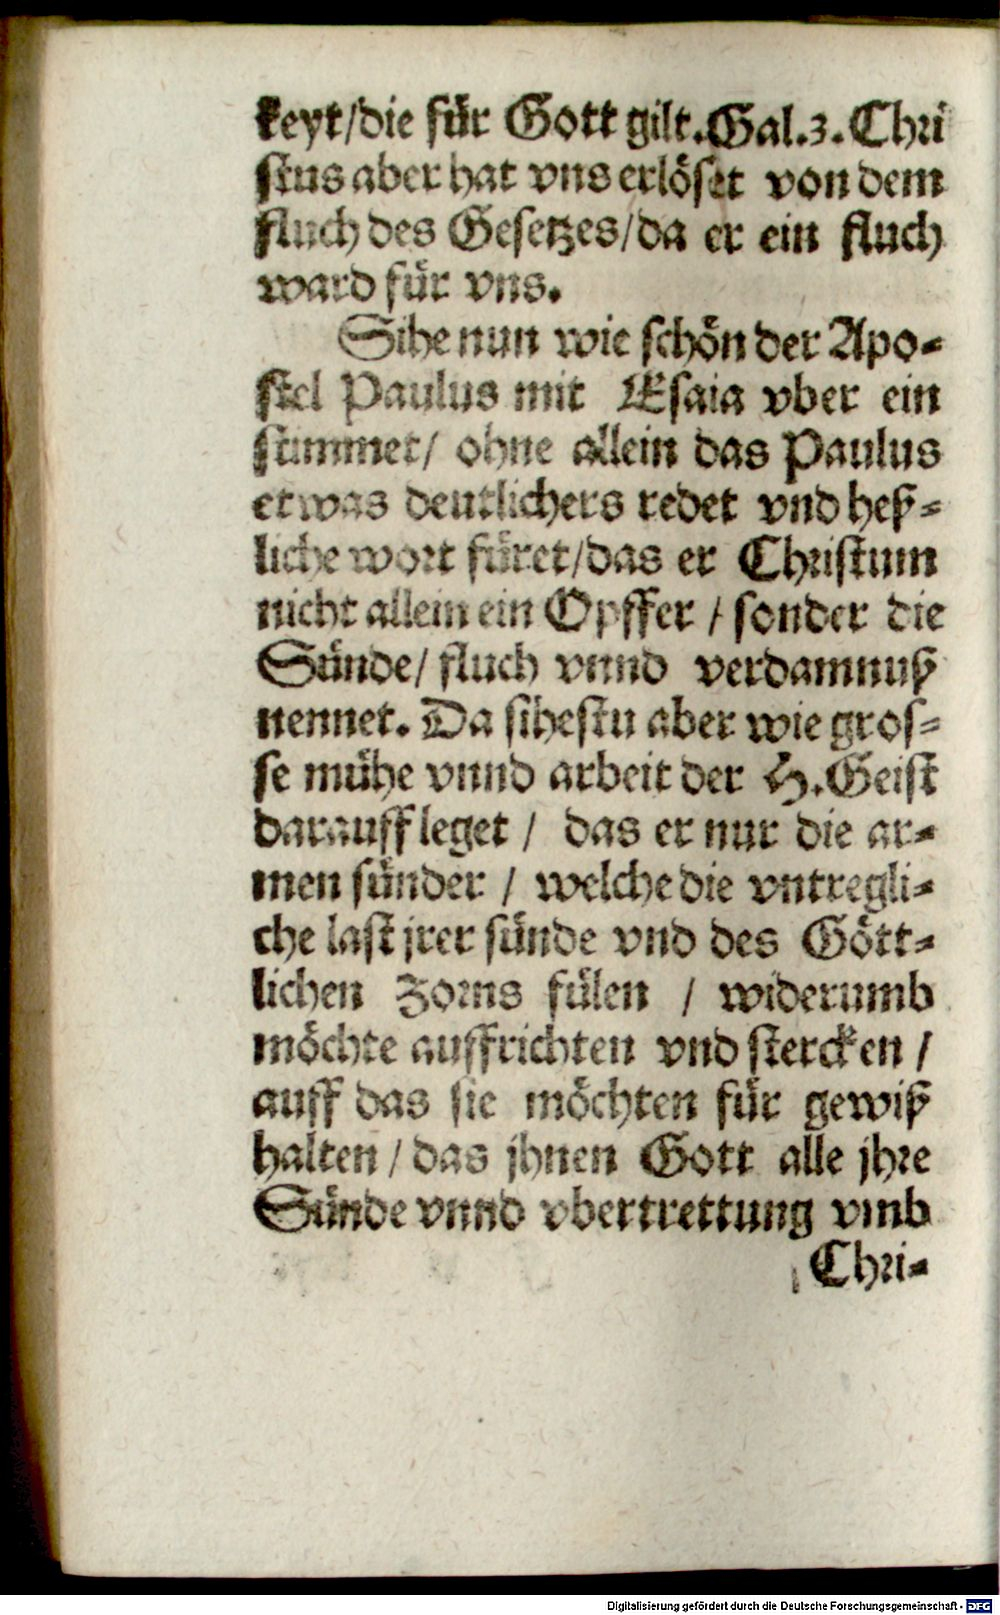 keyt/die für Gott gilt. Gal. 3. Chri
stus aber hat vns erlöset von dem
fluch des Gesetzes/da er ein fluch
ward für vns.
Sihe nun wie schön der Apo-
stel Paulus mit Esaia vber ein
stimmet/ ohne allein das Paulus
etwas deutlichers redet vnd heß-
liche wort füret/das er Christum
nicht allein ein Opffer / sonder die
Sünde/ fluch vnnd verdamnuß
nennet. Da sihestu aber wie gros-
se mühe vnnd arbeit der H. Geist
darauff leget / das er nur die ar-
men sünder / welche die vntregli-
che last jrer sünde vnd des Gött-
lichen Zorns fülen / widerumb
möchte auffrichten vnd stercken /
auff das sie möchten für gewiß
halten / das jhnen Gott alle jhre
Sünde vnnd vbertrettung vmb
Chri-
Digitalisierung gefördert durch die Deutsche Forschungsgemeinschaft - DFG